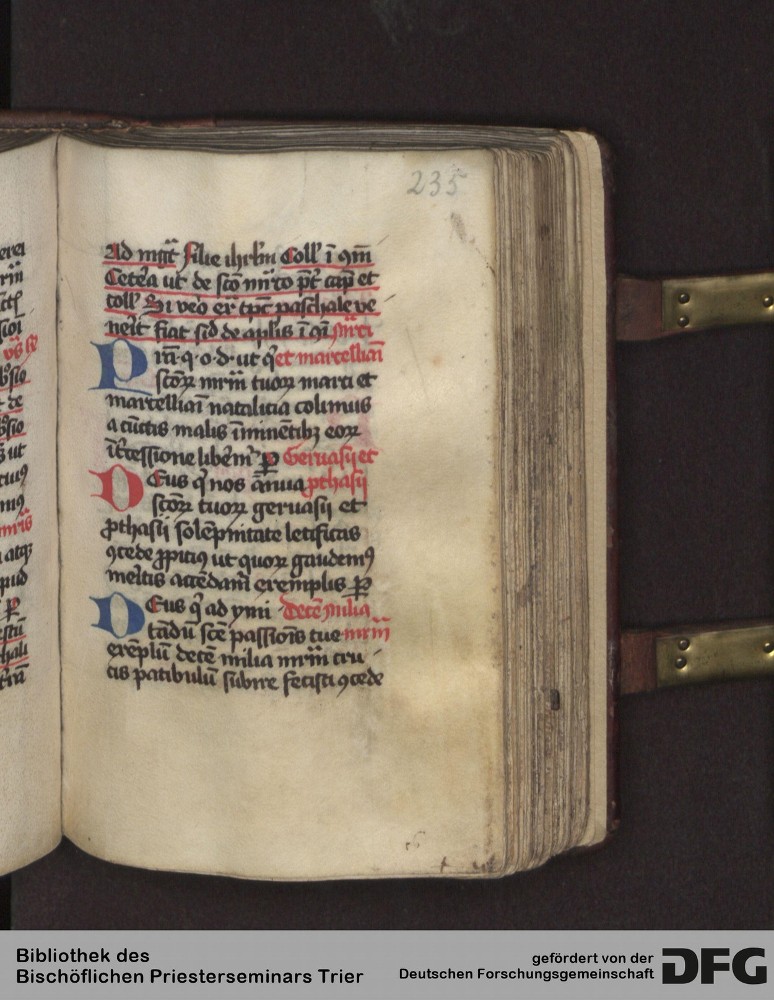 235
Ad mgt̄ Filie ihrłm Coll' ī 9m̄
Cetēa ut de scō mr̄to p̄t cap̄ et
coll' Si vēo er̄ tp̄c paschale ve
nēīt fiat sīđ de aplis ī 9i Mr̄ci
Pr̄n̄·q·o·d·ut q̄ et marcelliani
scōꝝ mr̄m̄ tuoꝝ marci et
marcelliani natalicia colimus
a cūctis malis īminētibꝫ eoꝝ
īt̄cessione libēm̄ ꝑ Geruasii et
Deus q̄ nos ānua ꝓthasii
scōꝝ tuoꝝ geruasii et
ꝓthasii solēpnitate letificas
ꝯcede ꝓpiciꝰ ut quoꝝ gaudemꝰ
meītis accēdam̄ exemplis ꝑ
Deus q̄ ad ymi Decē milia
tādū scē passiōis tue mr̄m̄
exēplū decē milia mr̄m̄ cru
cis patibulū subire fecisti ꝯcede
Bibliothek des
Bischöflichen Priesterseminars Trier
gefördert von der
Deutschen Forschungsgemeinschaft
DFG